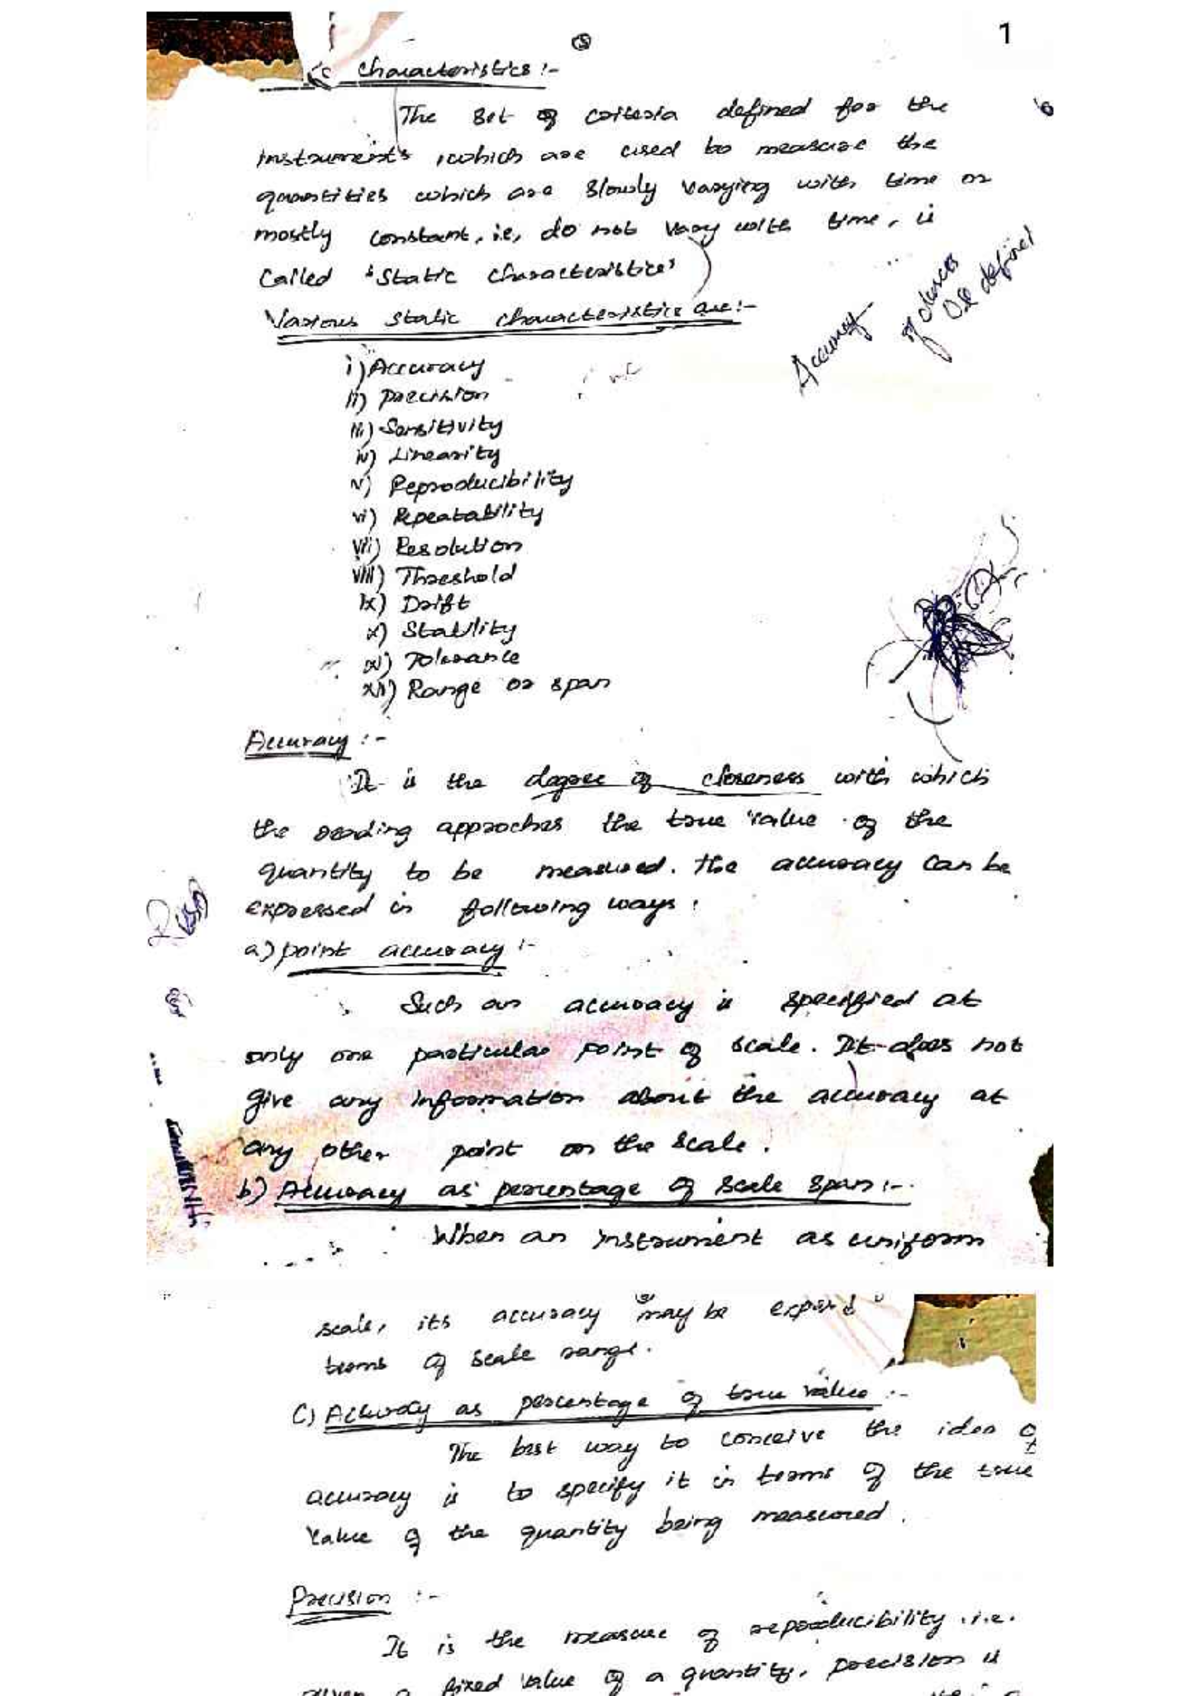 1
5
c characteristics :-
The set of criteria defined for the
6
instruments, which are used to measure the
quantities which are slowly varying with time or
mostly constant, i.e, do not vary with time, is
called 'static characteristics'
Various static characteristics are:-
Accuracy
of closeness
Use defined
i) Accuracy
ii) precision
iii) Sensitivity
iv) Linearity
v) Reproducibility
vi) Repeatability
vii) Resolution
viii) Threshold
ix) Drift
x) Stability
xi) Tolerance
xii) Range or span
Accuracy :-
It is the degree of closeness with which
the reading approches the true value of the
quantity to be measured. The accuracy can be
expressed in following ways:
a) point accuracy :-
Such an accuracy is specified at
only one particular point of scale. It does not
give any information about the accuracy at
any other point on the scale.
b) Accuracy as percentage of scale span :-
When an instrument as uniform
scale, its accuracy may be
terms of scale range.
c) Accuracy as percentage of true value :-
The best way to conceive the idea of
accuracy is to specify it in terms of the true
value of the quantity being measured.
Precision :-
It is the measure of reproducibility i.e.
given a fixed value of a quantity, precision is